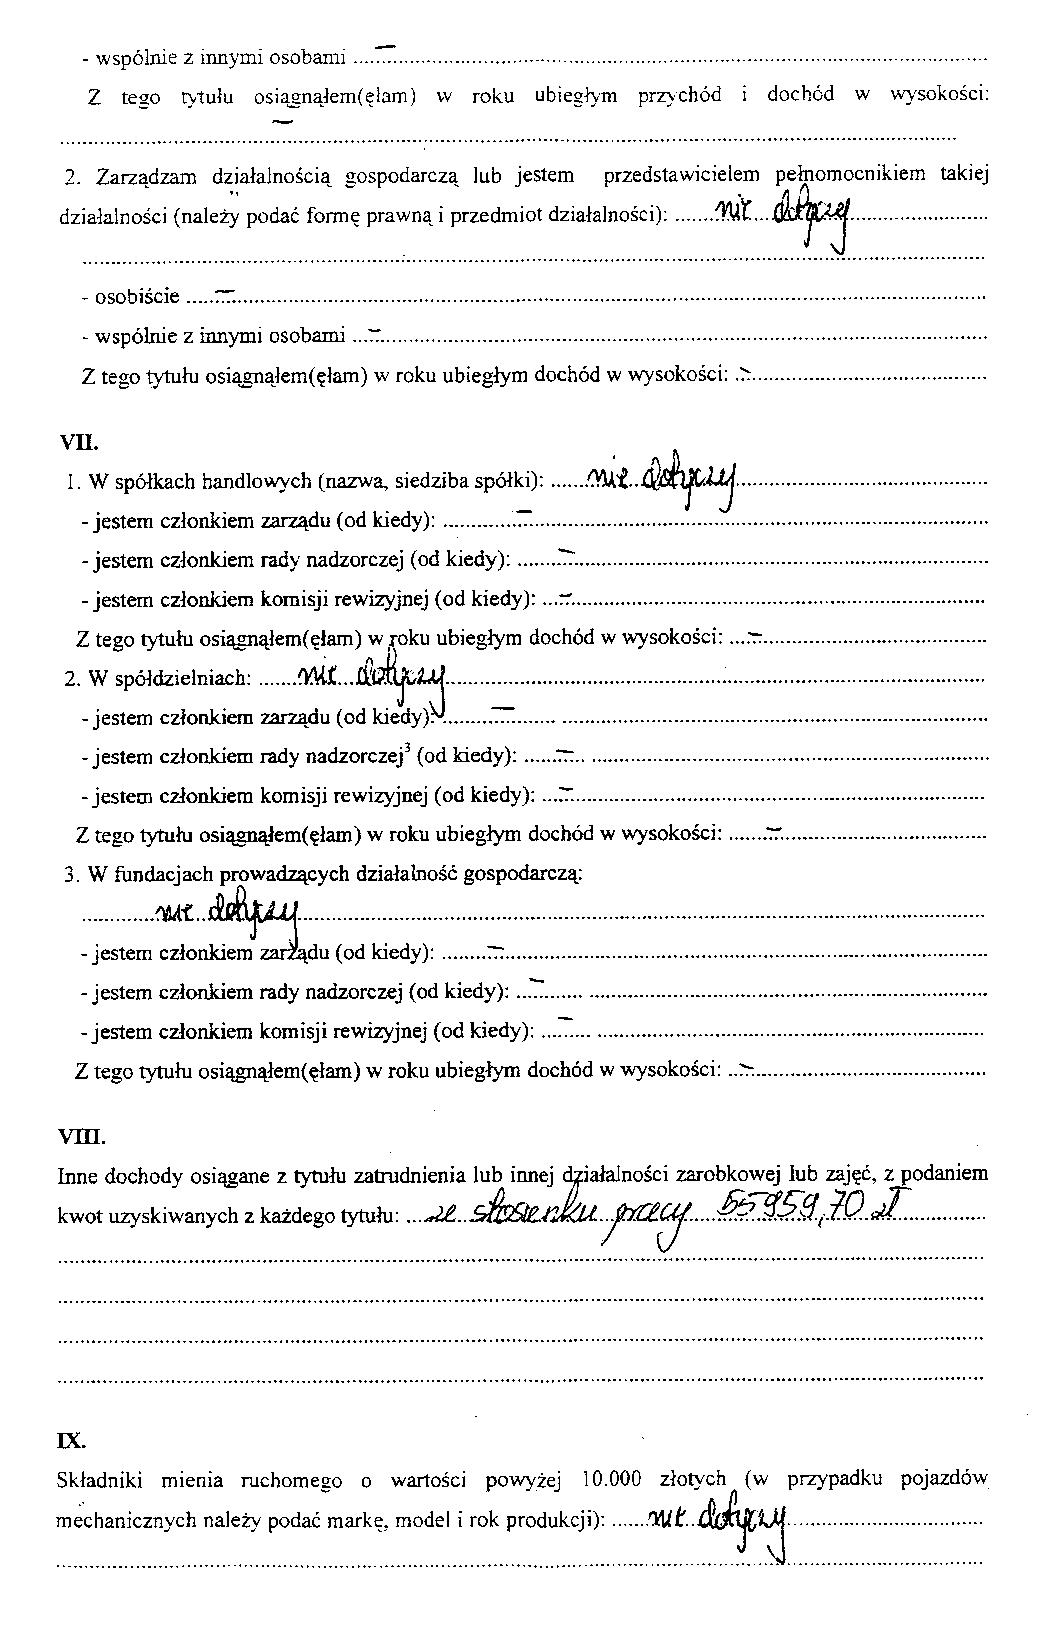 - wspólnie z innymi osobami ....–....
Z tego tytułu osiągnąłem(ęłam) w roku ubiegłym przychód i dochód w wysokości:
–
2. Zarządzam działalnością gospodarczą lub jestem przedstawicielem pełnomocnikiem takiej
działalności (należy podać formę prawną i przedmiot działalności): ....... nie dotyczy
- osobiście .....–....
- wspólnie z innymi osobami ...–....
Z tego tytułu osiągnąłem(ęłam) w roku ubiegłym dochód w wysokości: .–....
VII.
1. W spółkach handlowych (nazwa, siedziba spółki): ...... nie dotyczy
- jestem członkiem zarządu (od kiedy): ....–....
- jestem członkiem rady nadzorczej (od kiedy): ....–....
- jestem członkiem komisji rewizyjnej (od kiedy): ...–....
Z tego tytułu osiągnąłem(ęłam) w roku ubiegłym dochód w wysokości: ...–....
2. W spółdzielniach: ....... nie dotyczy
- jestem członkiem zarządu (od kiedy): ....–....
- jestem członkiem rady nadzorczej³ (od kiedy): ....–....
- jestem członkiem komisji rewizyjnej (od kiedy): ...–....
Z tego tytułu osiągnąłem(ęłam) w roku ubiegłym dochód w wysokości: ....–....
3. W fundacjach prowadzących działalność gospodarczą:
............ nie dotyczy
- jestem członkiem zarządu (od kiedy): ....–....
- jestem członkiem rady nadzorczej (od kiedy): ...–....
- jestem członkiem komisji rewizyjnej (od kiedy): ...–....
Z tego tytułu osiągnąłem(ęłam) w roku ubiegłym dochód w wysokości: ..–....
VIII.
Inne dochody osiągane z tytułu zatrudnienia lub innej działalności zarobkowej lub zajęć, z podaniem
kwot uzyskiwanych z każdego tytułu: ... ze stosunku pracy 55959,70 zł
IX.
Składniki mienia ruchomego o wartości powyżej 10.000 złotych (w przypadku pojazdów
mechanicznych należy podać markę, model i rok produkcji): ...... nie dotyczy